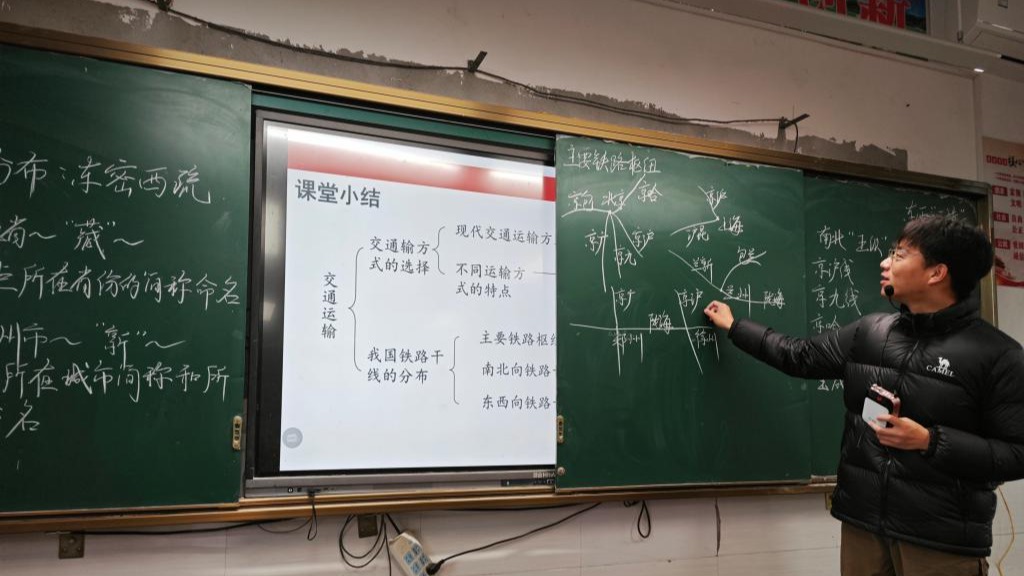 分布：东密西疏
"藏"～
所在省份的简称命名
州市～ "新"～
所在城市简称和所
名
课堂小结
交通运输
交通输方
式的选择
现代交通运输方
不同运输方
式的特点
我国铁路干
线的分布
主要铁路枢纽
南北向铁路
东西向铁路
主要铁路枢纽
京哈
北京
京广
京九
京沪
京沪
上海
沪昆
兰新
包兰
兰州
陇海
京广
京沪
陇海
郑州
徐州
南北
京沪线
京九线
CAMEL